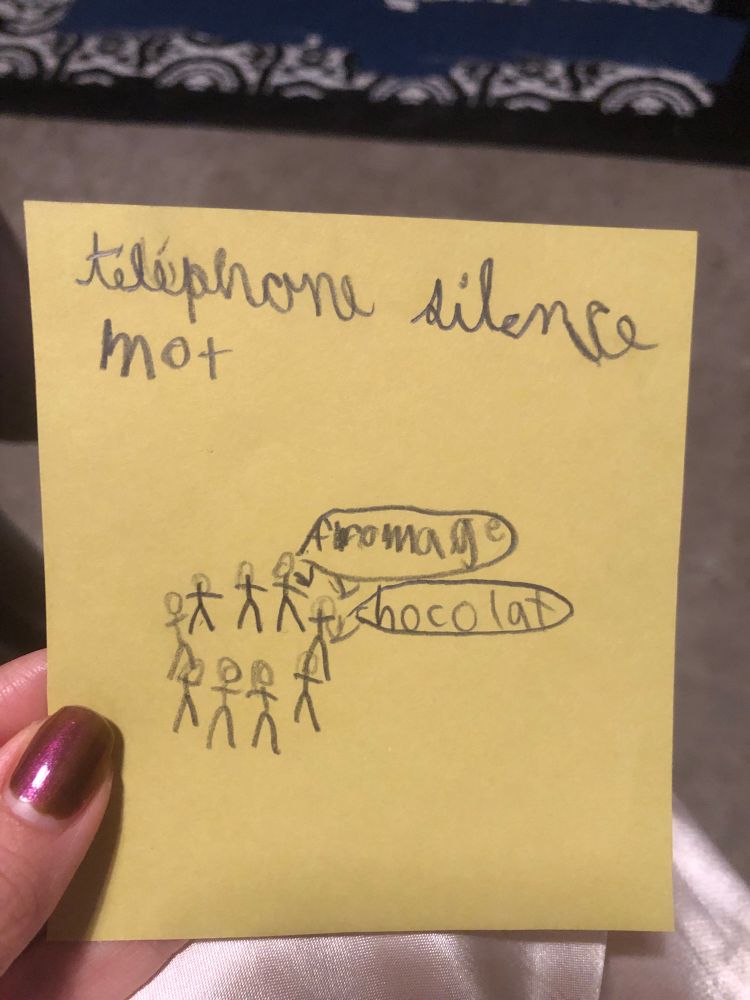 téléphone silence
mot
fromage
chocolat